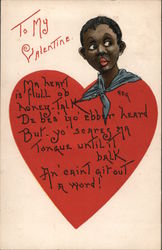 To My
Valentine.
Ma heart
is full ob
honey talk
De bes' yo' ebber heard
But yo' scares ma
tongue until it
balk
An' caint git out
a word!